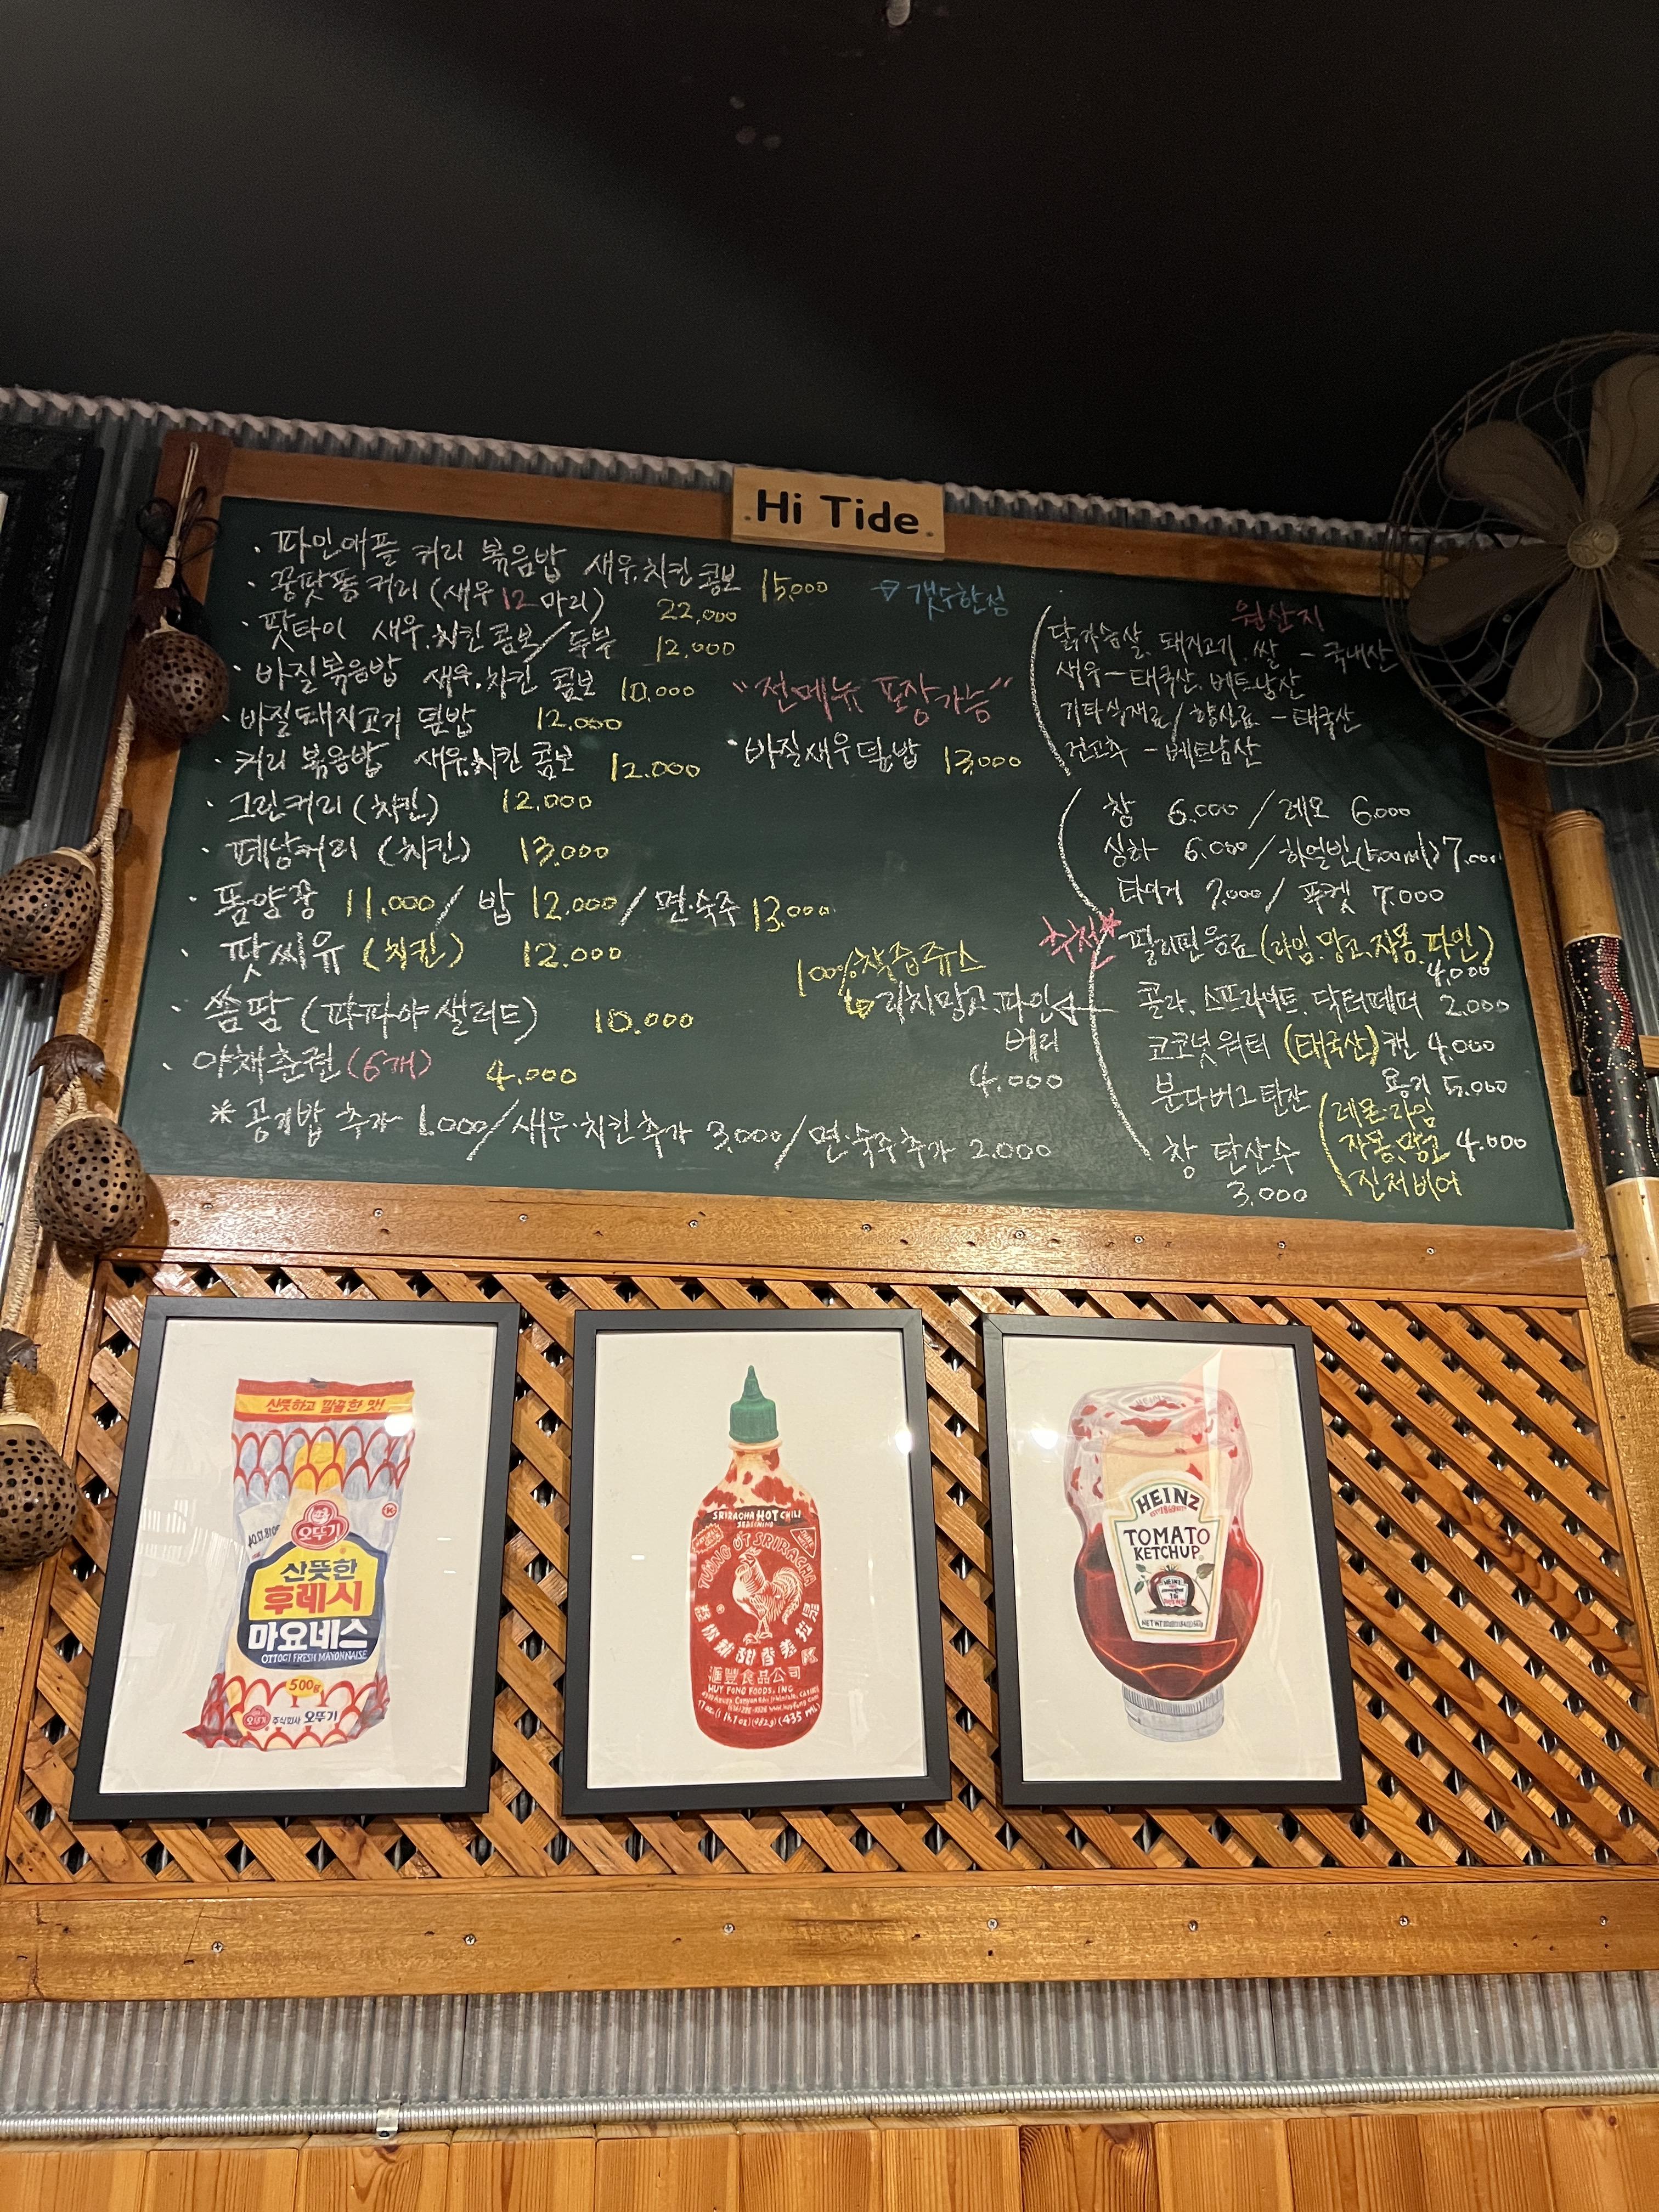 Hi Tide
· 파인애플 커리 볶음밥 새우.치킨 콤보 15,000
· 꿍팟퐁커리 (새우 12 마리) 22,000
· 팟타이 새우.치킨 콤보/두부 12.000
· 바질볶음밥 새우.치킨 콤보 10,000
· 바질돼지고기 덮밥 12.000
· 커리 볶음밥 새우.치킨 콤보 12.000
· 그린커리 (치킨) 12.000
· 페낭커리 (치킨) 13.000
· 똠얌꿍 11.000/ 밥 12.000/ 면.숙주 13.000
· 팟씨유 (치킨) 12.000
· 쏨땀 (파파야 샐러드) 10.000
· 야채춘권 (6개) 4.000
* 공기밥 추가 1.000/새우.치킨추가 3,000/면.숙주추가 2.000
갯수한정
"전메뉴 포장가능"
· 바질새우덮밥 13,000
100% 착즙쥬스
리치.망고.파인
베리
4.000
원산지
닭가슴살. 돼지고기. 쌀 - 국내산
새우 - 태국산. 베트남산
기타식재료/ 향신료 - 태국산
건고추 - 베트남산
창 6.000 / 레오 6.000
싱하 6.000 / 하얼빈(500ml) 7.000
타이거 7.000/ 푸켓 7.000
추천*
필리핀음료 (라임.망고.자몽.파인)
4,000
콜라. 스프라이트. 닥터페퍼 2.000
코코넛워터 (태국산) 캔 4.000
용기 5.000
분다버그 탄산
레몬.라임
자몽.망고 4.000
진저비어
창 탄산수
3,000
산뜻하고 깔끔한 맛!
오뚜기
산뜻한
후레시
마요네스
OTTOGI FRESH MAYONNAISE
500g
주식회사 오뚜기
SRIRACHA HOT CHILI
TƯƠNG ỚT SRIRACHA
滙豐食品公司
HUY FONG FOODS, INC.
(435 ML)
HEINZ
TOMATO
KETCHUP